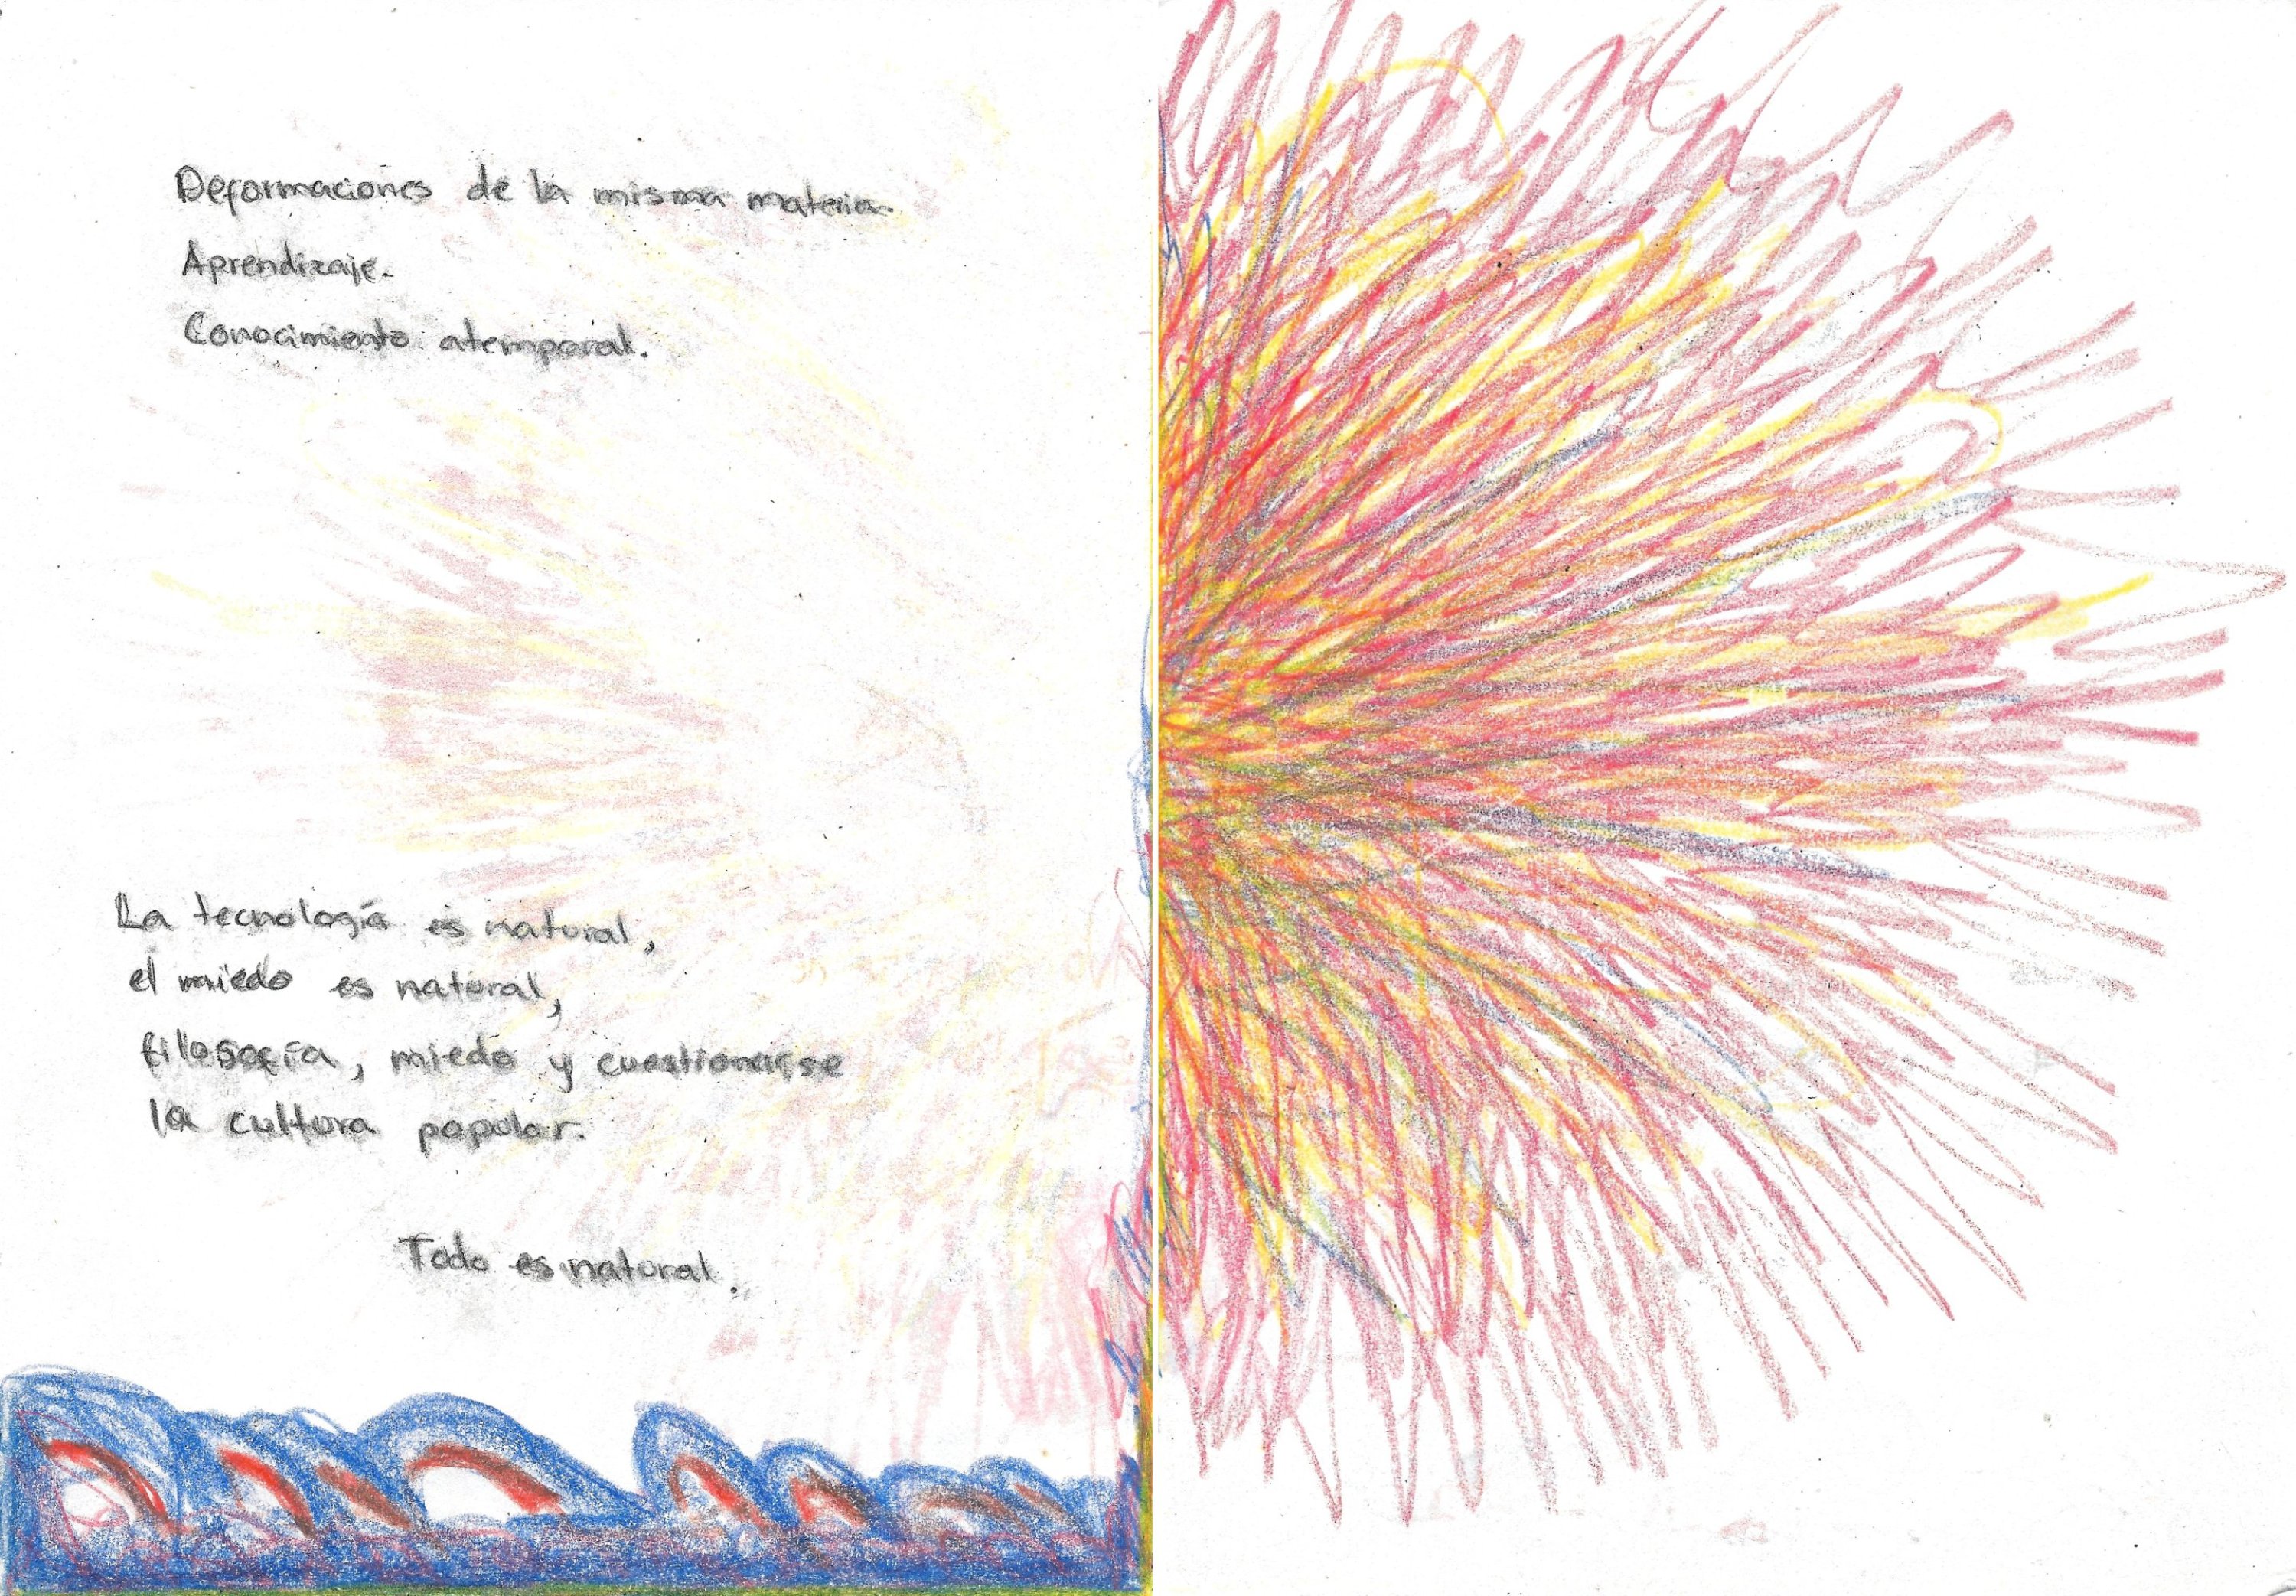 Deformaciones de la misma materia.
Aprendizaje.
Conocimiento atemporal.
La tecnología es natural,
el miedo es natural,
filosofía, miedo y cuestionarse
la cultura popular.
Todo es natural.